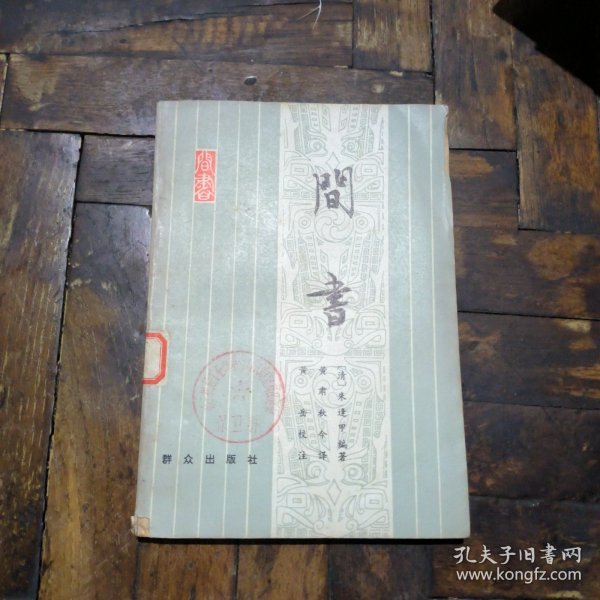 間書
間書
[清]朱逢甲編著
黄甫秋今譯
黄岳校注
群众出版社
孔夫子旧書网
www.kongfz.com